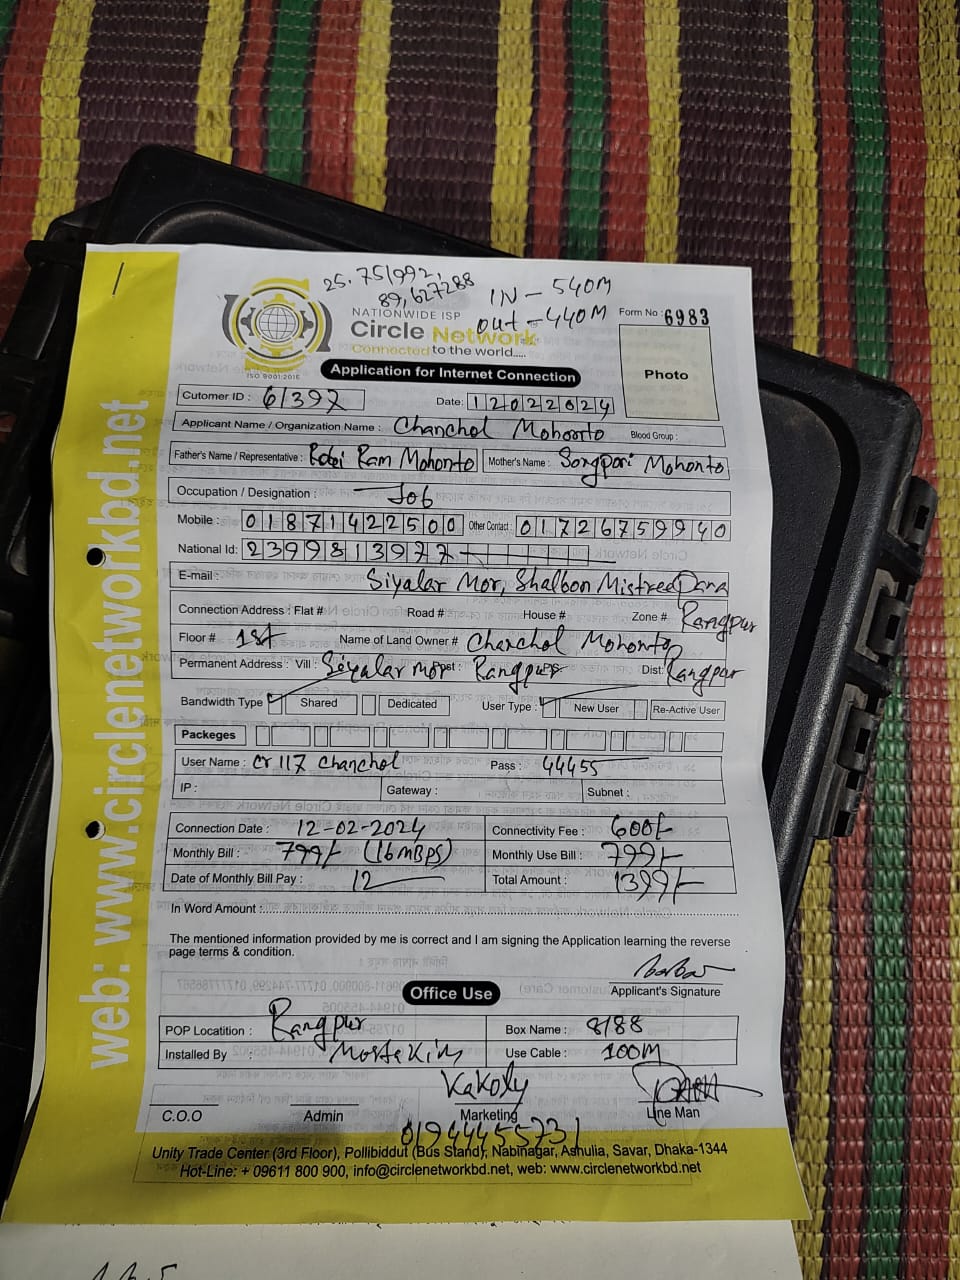 25.751992,
89,627288
IN - 540M
out - 440M
NATIONWIDE ISP
Circle Network
Connected to the world.....
ISO 9001:2015
Form No : 6983
Photo
Application for Internet Connection
Cutomer ID : 61397
Date: 12022024
Applicant Name / Organization Name : Chanchol Mohonto Blood Group :
Father's Name / Representative : Robi Ram Mohonto Mother's Name : Songpori Mohonto
Occupation / Designation : Job
Mobile : 01871422500 Other Contact : 01726759940
National Id: 2399813977
E-mail : Siyalar Mor, Shalbon Mistree Para
Connection Address : Flat # Road # House # Zone # Rangpur
Floor # 1st Name of Land Owner # Chanchol Mohonto
Permanent Address : Vill : Siyalar mor Post : Rangpur PS: Dist: Rangpur
Bandwidth Type Shared Dedicated User Type : New User Re-Active User
Packeges
User Name : cr117 chanchol Pass : 44455
IP : Gateway : Subnet :
Connection Date : 12-02-2024 Connectivity Fee : 600/-
Monthly Bill : 799/- (16MBPS) Monthly Use Bill : 799/-
Date of Monthly Bill Pay : 12 Total Amount : 1399/-
In Word Amount :
The mentioned information provided by me is correct and I am signing the Application learning the reverse
page terms & condition.
Applicant's Signature
Office Use
POP Locatition : Rangpur Box Name : 8/88
Installed By : Mostakim Use Cable : 100M
Kakoly
C.O.O Admin Marketing Line Man
01944455731
Unity Trade Center (3rd Floor), Pollibiddut (Bus Stand), Nabinagar, Ashulia, Savar, Dhaka-1344
Hot-Line: + 09611 800 900, info@circlenetworkbd.net, web: www.circlenetworkbd.net
web: www.circlenetworkbd.net